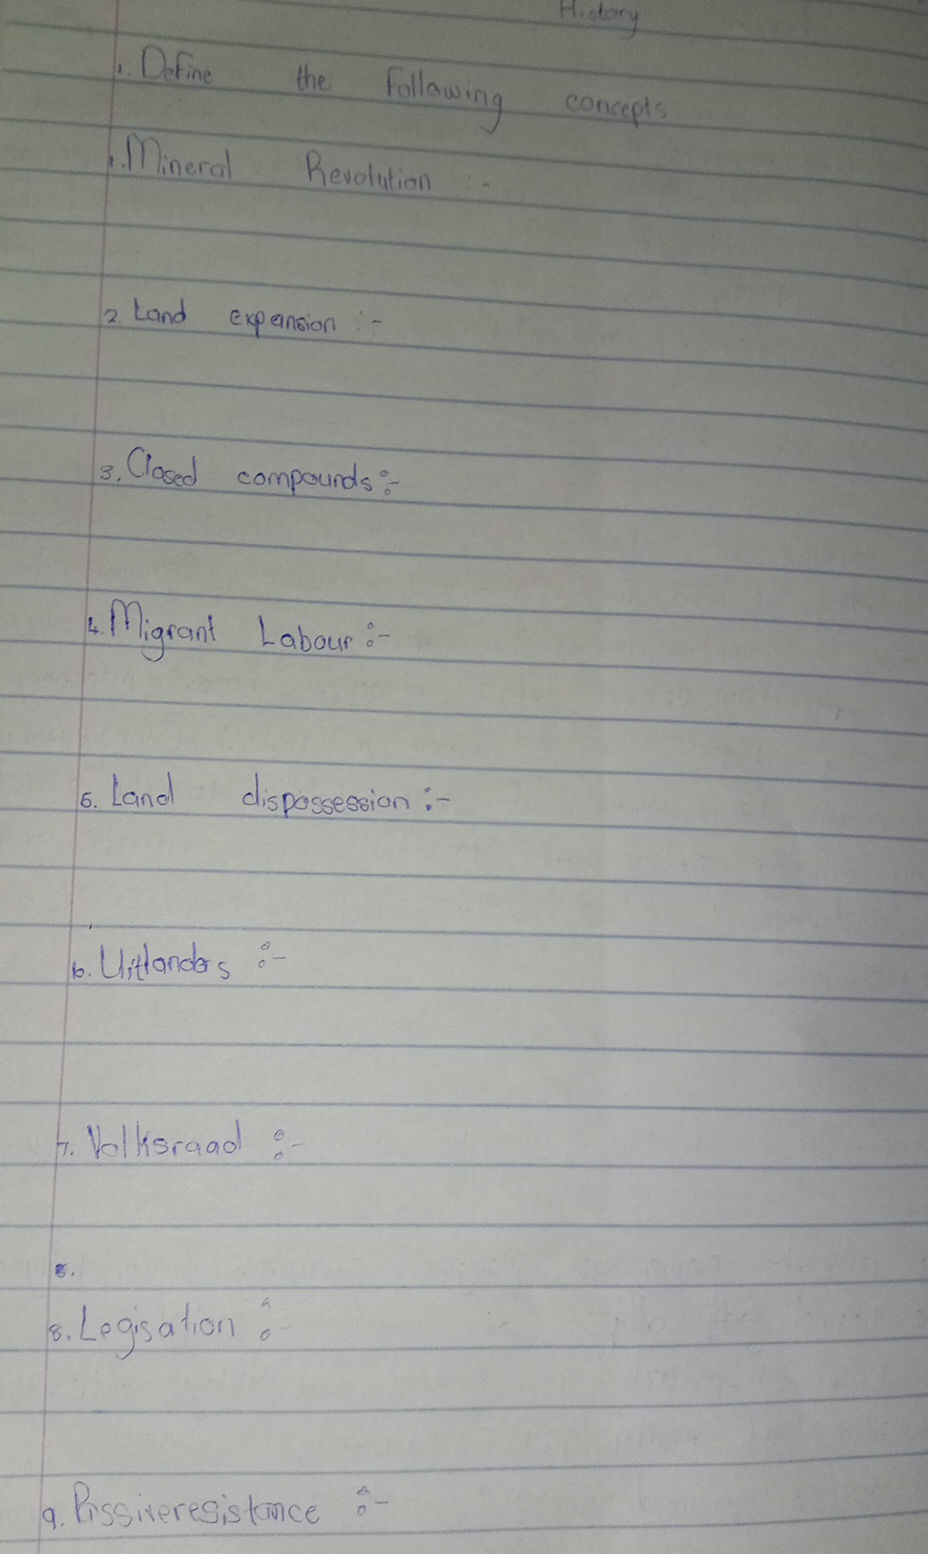 History
1. Define the following concepts
1. Mineral Revolution :-
2. Land expansion :-
3. Closed compounds :-
4. Migrant Labour :-
5. Land dispossession :-
6. Uitlanders :-
7. Volksraad :-
8.
8. Legisation :-
9. Passiveresistance :-